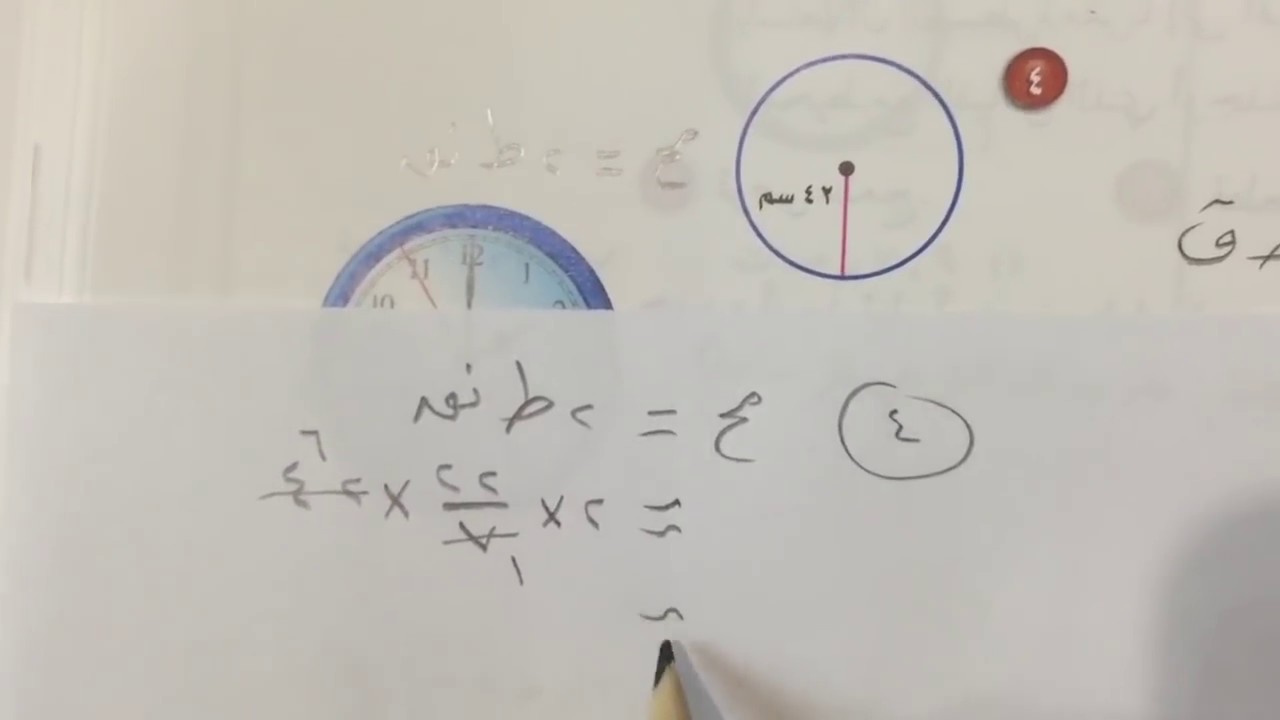 ٤
٤٢ سم
ع = ٢ ط نق
10 11 12 1 2
٤ ع = ٢ ط نق
≈ ٢ × ٢٢/٧ × ٤٢
٦
١
≈